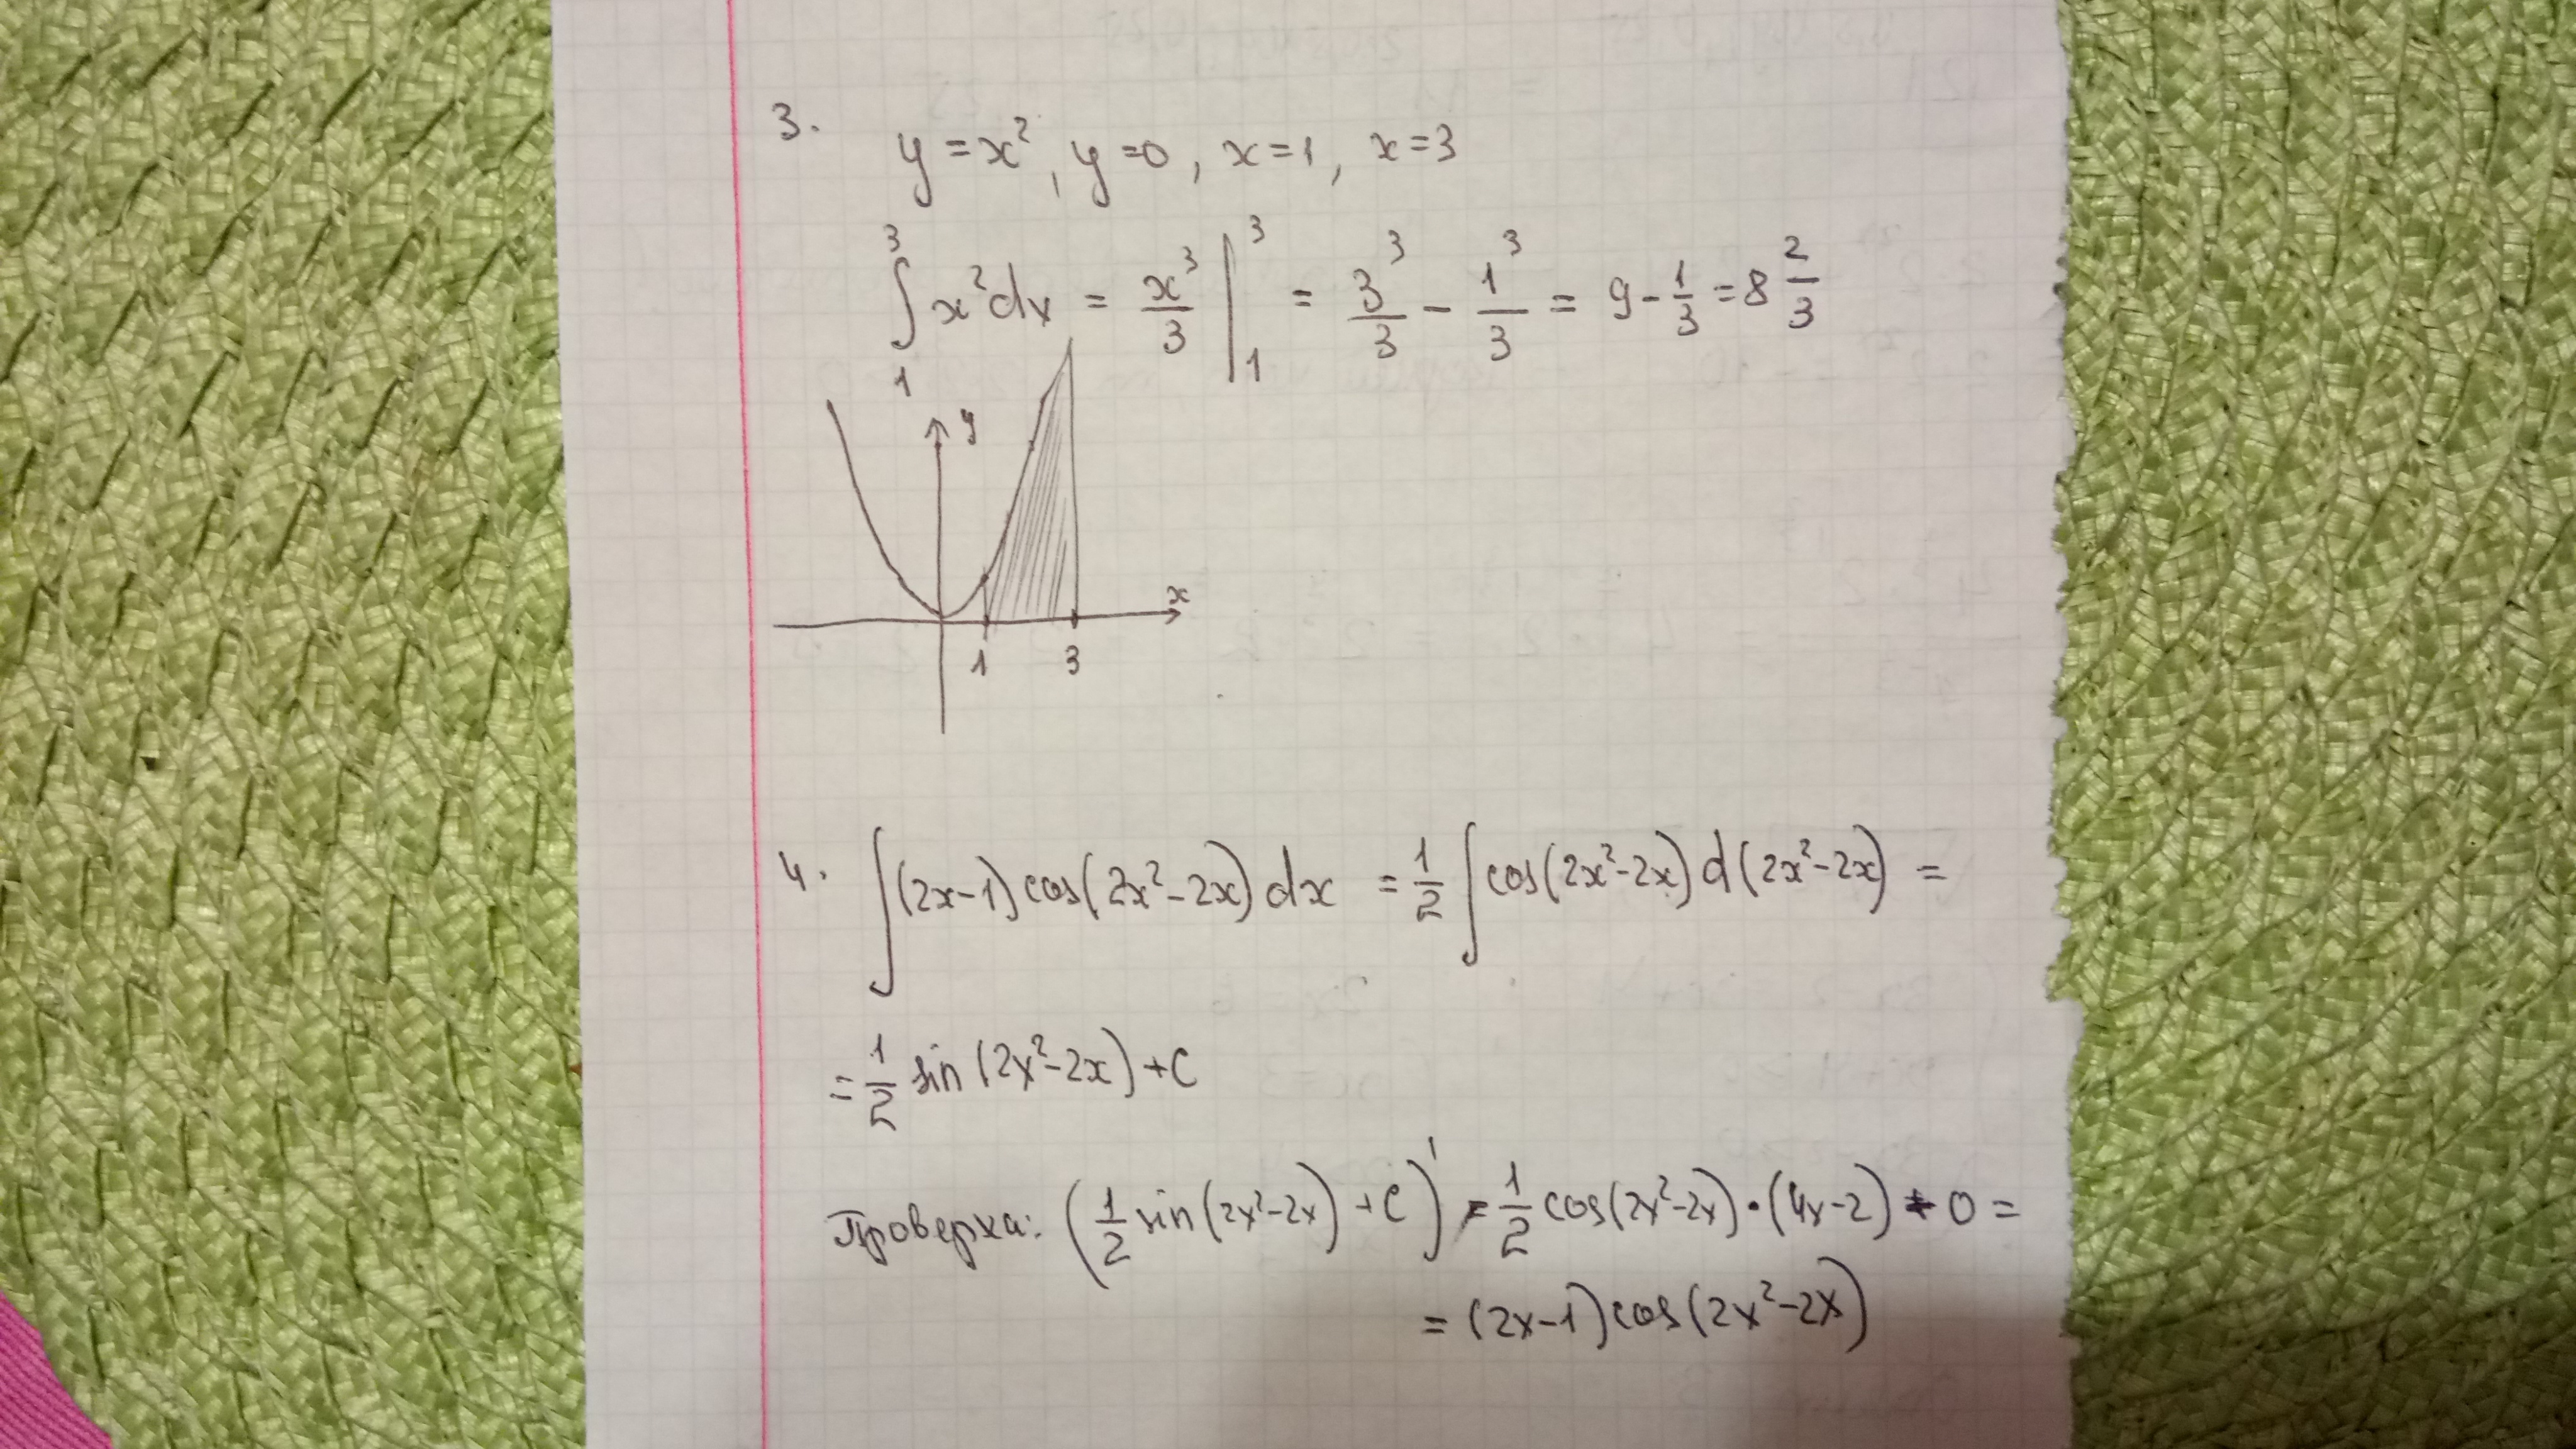 3.
y = x², y = 0, x = 1, x = 3
∫₁³ x² dx = x³/3 |₁³ = 3³/3 - 1³/3 = 9 - 1/3 = 8 2/3
y
x
1 3
4. ∫(2x-1) cos(2x²-2x) dx = 1/2 ∫cos(2x²-2x) d(2x²-2x) =
= 1/2 sin(2x²-2x) + C
Проверка: (1/2 sin(2x²-2x) + C)' = 1/2 cos(2x²-2x) · (4x-2) + 0 =
= (2x-1) cos(2x²-2x)